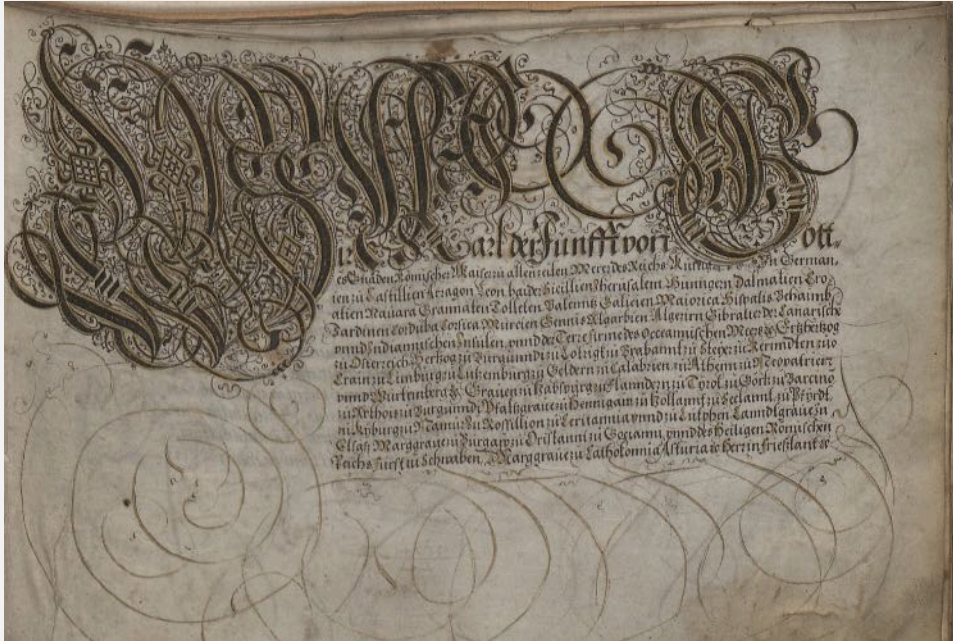 Wir Carl der Funfft von Gott.
es Gnaden Römischer Kaiser zu allen zeiten Merer des Reichs. Künig In German,
ien zu Castillien Arragon Leon baider Sicillien Jherusalem Hungern Dalmatien Cro,
atien Nauara Grannaten Tolleten Valentz Galicien Maiorica Hispalis
Sardinien Corduba Corsica Murcien Gennis Algarbien Algeziern Gibraltar der Canarische
vnnd Indiannischen Insulen, vnnd der Terre firme des Occeannischen Meers &c Ertzhertzog
zu Österreich Hertzog zu Burgunndi zu Lotrigkh zu Brabannt zu Steyr zu Kernndten zu
Crain zu Limburg zu Lutzemburg zu Geldern zu Calabrien zu Athenn zu Neopatrien
vnnd Würtenberg &c Graue zu Habspurg zu Flanndern zu Tyrol zu Görtz zu Barcino
zu Arthois zu Burgunndi Pfaltzgraue zu Hennigaw zu Hollannt zu Seelannt, zu Pfyrdt
zu Kyburg zu Namur zu Rossillion zu Ceritannia vnnd zu Zutphen Lanndtgraue In
Elsaß Marggraue zu Burgaw zu Oristanni zu Gociannj, vnnd des Heiligen Römischen
Reichs Fürst zu Schwaben, Marggraue zu Catholonnia Asturia &c Herr in Frießlant &c